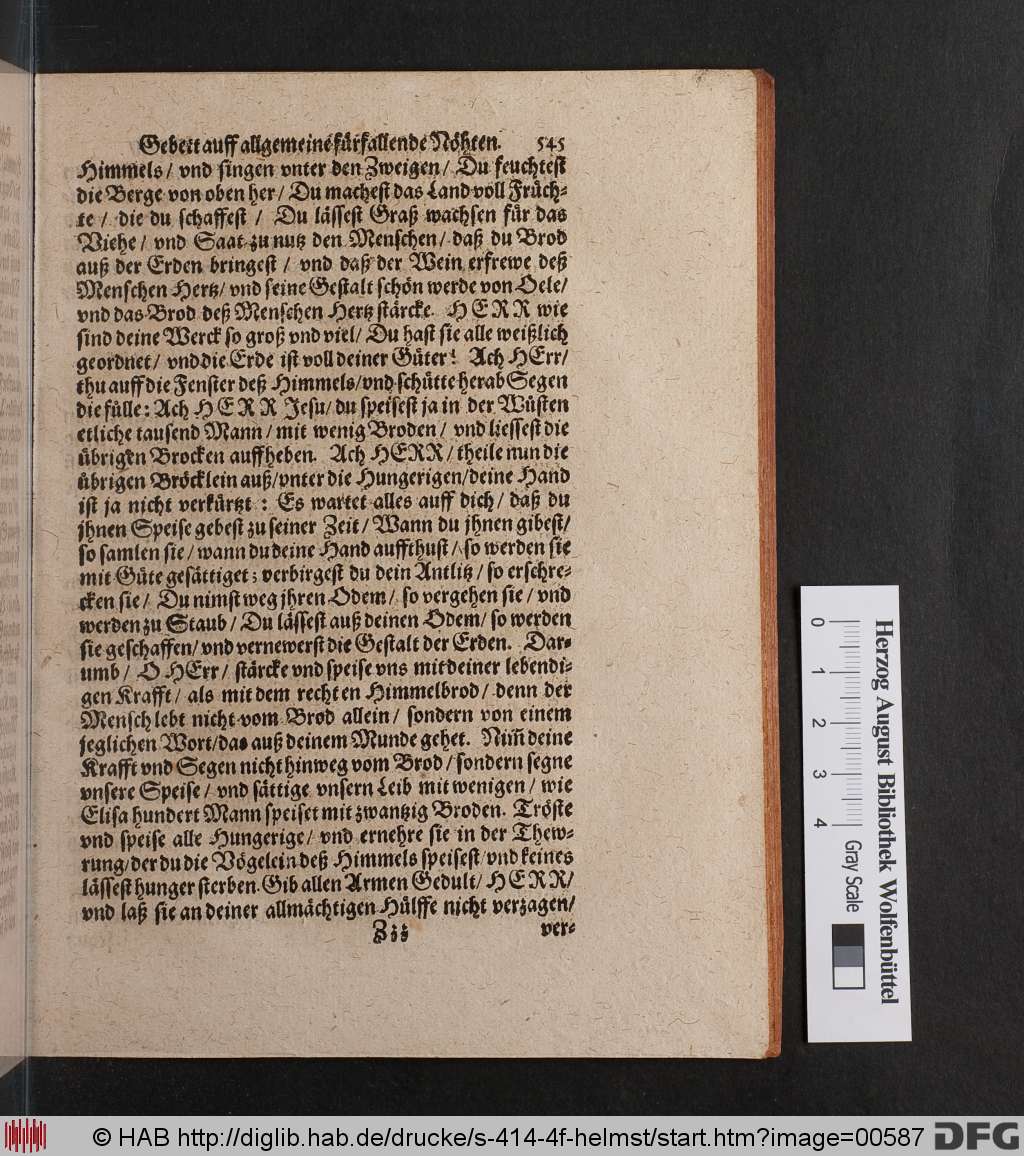 Gebett auff allgemeine fürfallende Nöhten. 545
Himmels / vnd singen vnter den Zweigen / Du feuchtest
die Berge von oben her / Du machest das Land voll Früch-
te / die du schaffest / Du lässest Graß wachsen für das
Viehe / vnd Saat zu nutz den Menschen / daß du Brod
auß der Erden bringest / vnd daß der Wein erfrewe deß
Menschen Hertz / vnd seine Gestalt schön werde von Oele /
vnd das Brod deß Menschen Hertz stärcke. HERR wie
sind deine Werck so groß vnd viel / Du hast sie alle weißlich
geordnet / vnd die Erde ist voll deiner Güter! Ach HErr /
thu auff die Fenster deß Himmels / vnd schütte herab Segen
die fülle: Ach HERR Jesu / du speisest ja in der Wüsten
etliche tausend Mann / mit wenig Broden / vnd liessest die
übrigen Brocken auffheben. Ach HERR / theile nun die
übrigen Bröcklein auß / vnter die Hungerigen / deine Hand
ist ja nicht verkürtzt : Es wartet alles auff dich / daß du
jhnen Speise gebest zu seiner Zeit / Wann du jhnen gibest /
so samlen sie / wann du deine Hand auffthust / so werden sie
mit Güte gesättiget; verbirgest du dein Antlitz / so erschre-
cken sie / Du nimst weg jhren Odem / so vergehen sie / vnd
werden zu Staub / Du lässest auß deinen Odem / so werden
sie geschaffen / vnd vernewerst die Gestalt der Erden. Dar-
umb / O HErr / stärcke vnd speise vns mit deiner lebendi-
gen Krafft / als mit dem rechten Himmelbrod / denn der
Mensch lebt nicht vom Brod allein / sondern von einem
jeglichen Wort / das auß deinem Munde gehet. Nim̃ deine
Krafft vnd Segen nicht hinweg vom Brod / sondern segne
vnsere Speise / vnd sättige vnsern Leib mit wenigen / wie
Elisa hundert Mann speiset mit zwantzig Broden. Tröste
vnd speise alle Hungerige / vnd ernehre sie in der Thew-
rung / der du die Vögelein deß Himmels speisest / vnd keines
lässest hunger sterben. Gib allen Armen Gedult / HERR /
vnd laß sie an deiner allmächtigen Hülffe nicht verzagen /
Z z z ver-
0 1 2 3 4
Gray Scale
Herzog August Bibliothek Wolfenbüttel
© HAB http://diglib.hab.de/drucke/s-414-4f-helmst/start.htm?image=00587 DFG